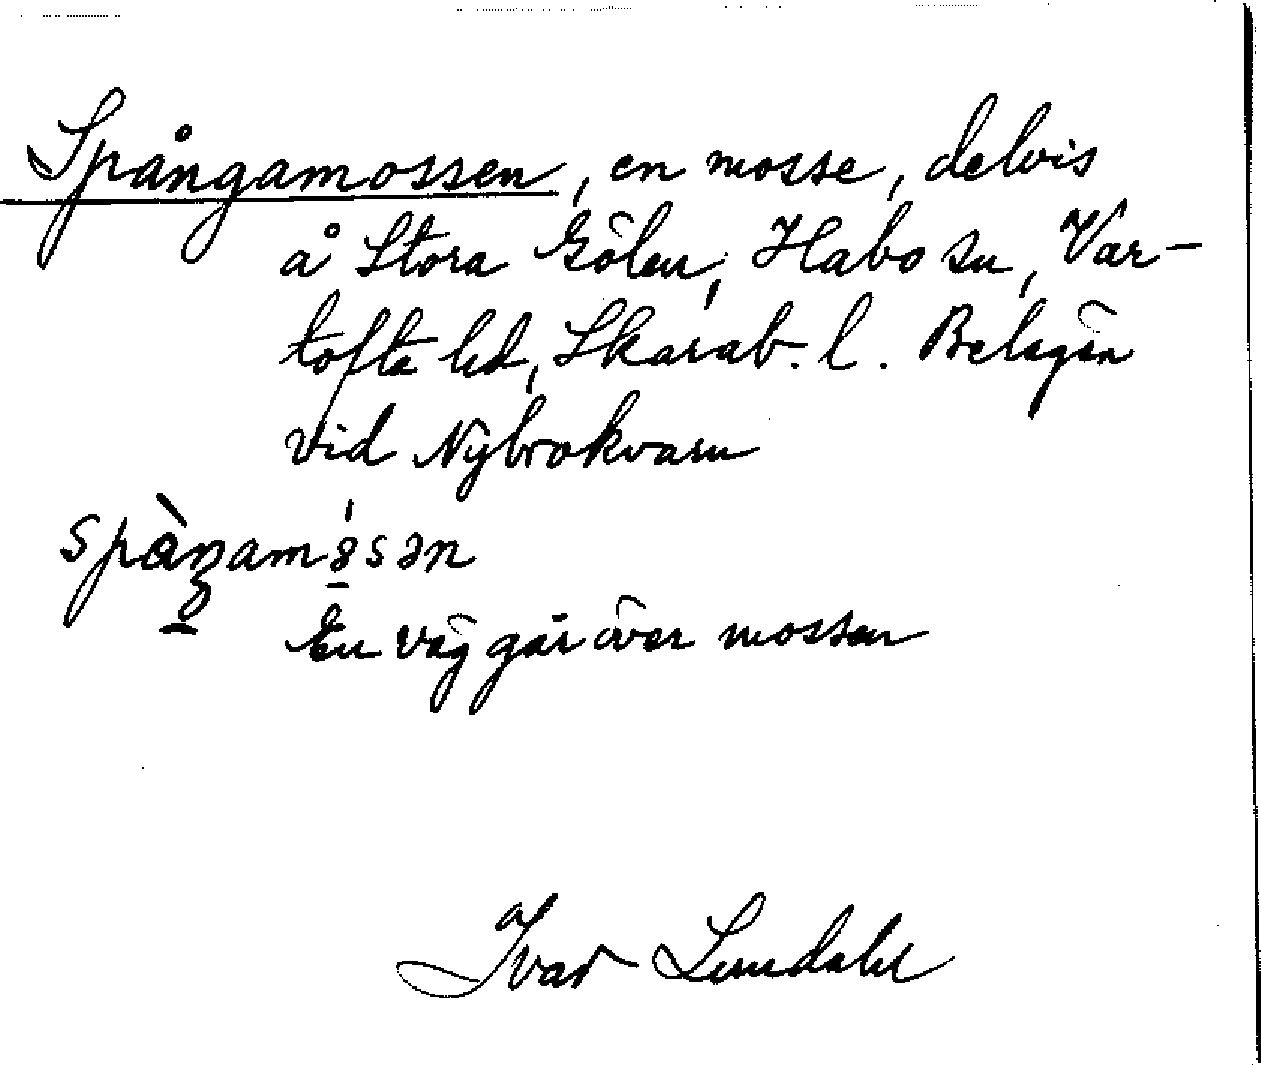 Spångamossen, en mosse, delvis
å Stora Gölen, Habo sn, Var-
tofta hd, Skarab. l. Belägen
vid Nybrokvarn
En väg går över mossen
Ivar Lundahl